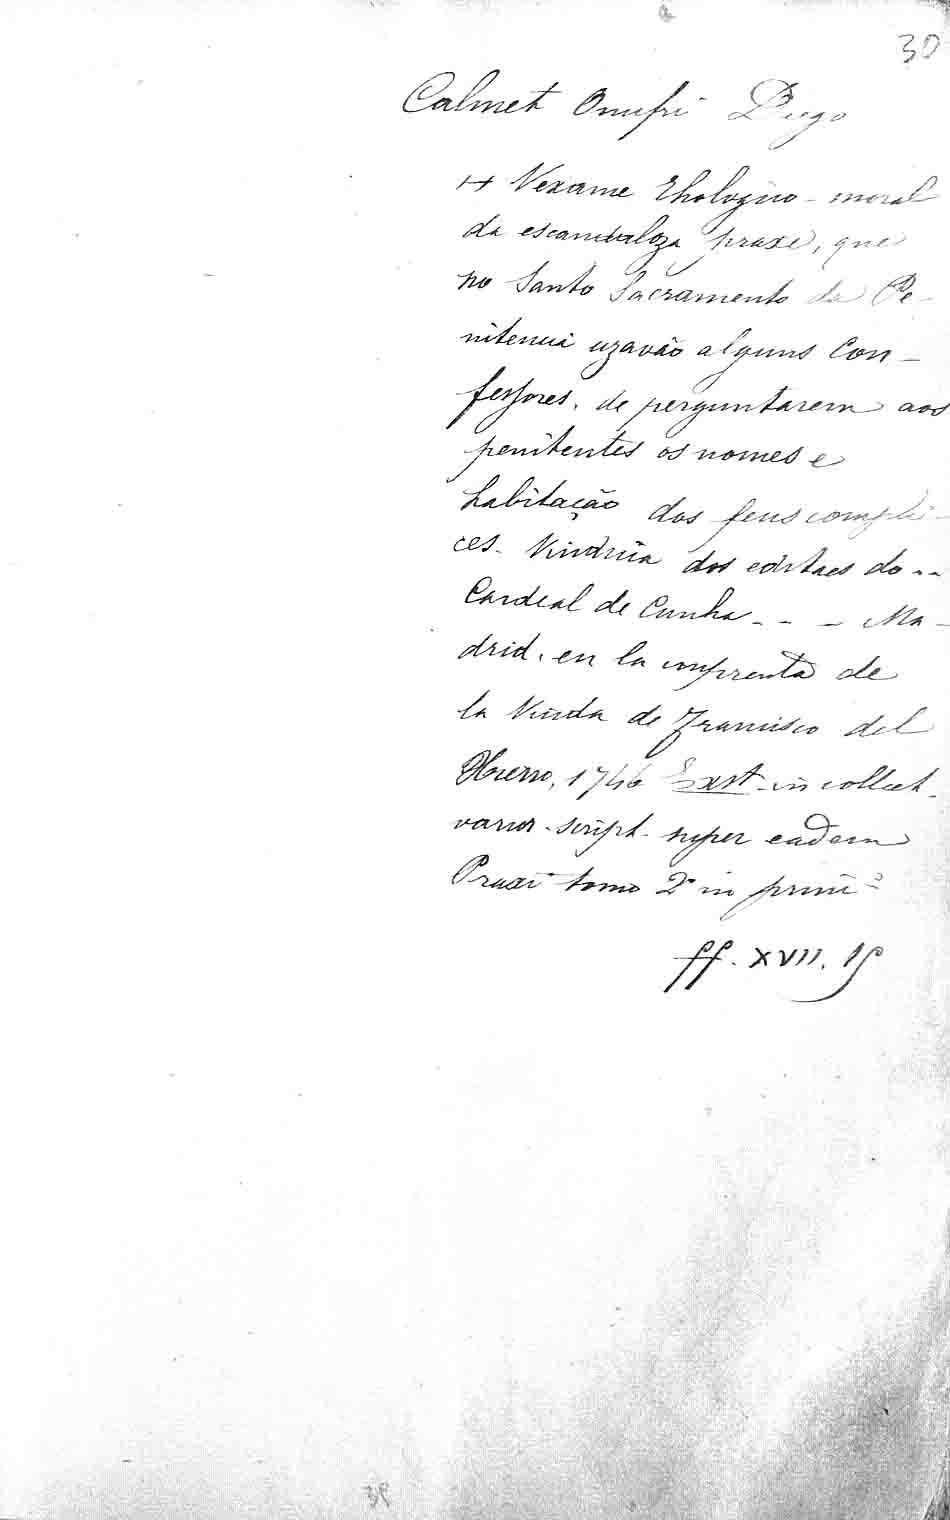 30
Calmet Onufri Diego
Vexame Theologico - moral
da escandaloza praxe, que
no Santo Sacramento da Pe-
nitencia uzavão alguns Con-
fessores, de perguntarem aos
penitentes os nomes e
habitação dos seus compli-
ces. Vindicia dos editaes do --
Cardeal de Cunha - - - Ma-
drid. en la imprenta de
la Viuda de Francisco del
Hierro, 1746 Exst. in collect.
varior. script. super eadem
Praxi tomo 2º in princ.
ff. XVII. 15